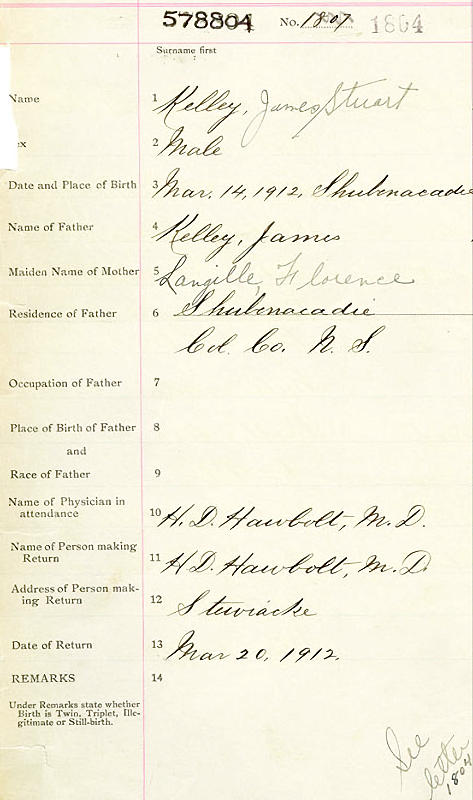 578804 No. 1807 1804
Surname first
Name 1 Kelley, James Stuart
ex 2 Male
Date and Place of Birth 3 Mar. 14, 1912, Shubenacadie
Name of Father 4 Kelley, James
Maiden Name of Mother 5 Langille, Florence
Residence of Father 6 Shubenacadie
Col. Co. N. S.
Occupation of Father 7
Place of Birth of Father 8
and
Race of Father 9
Name of Physician in
attendance 10 H. D. Hawbolt, M. D.
Name of Person making
Return 11 H D. Hawbolt, M. D.
Address of Person mak-
ing Return 12 Stewiacke
Date of Return 13 Mar 20, 1912.
REMARKS 14
Under Remarks state whether
Birth is Twin, Triplet, Ille-
gitimate or Still-birth.
See
letter
1804